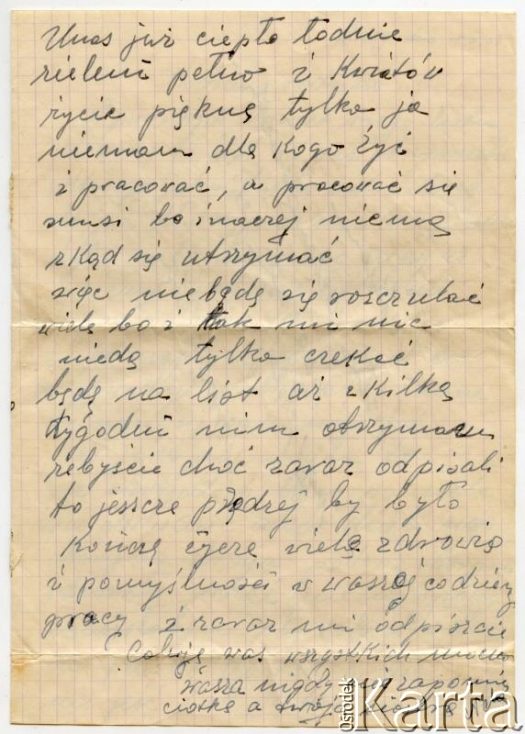 Unas już ciepło ładnie
zieleni pełno i Kwiatów
życie piękne tylko ja
niemam dla kogo żyć
i pracować, a pracować się
musi bo inaczej niema
zkąd się utrzymać
więc niebędę się rosczulać
wiele bo i tak mi nic
nieda tylko czekać
będę na list aż kilka
tygodni nim otrzymam
żebyście choć zaraz odpisali
to jeszcze prędzej by było
Kończę życzę wiele zdrowia
i pomyślności w waszej codzieny
pracy i zaraz mi odpiszcie
Całuję was wszystkich
wasza nigdy niezapomni
ciotka a twoja siostra
Ośrodek Karta